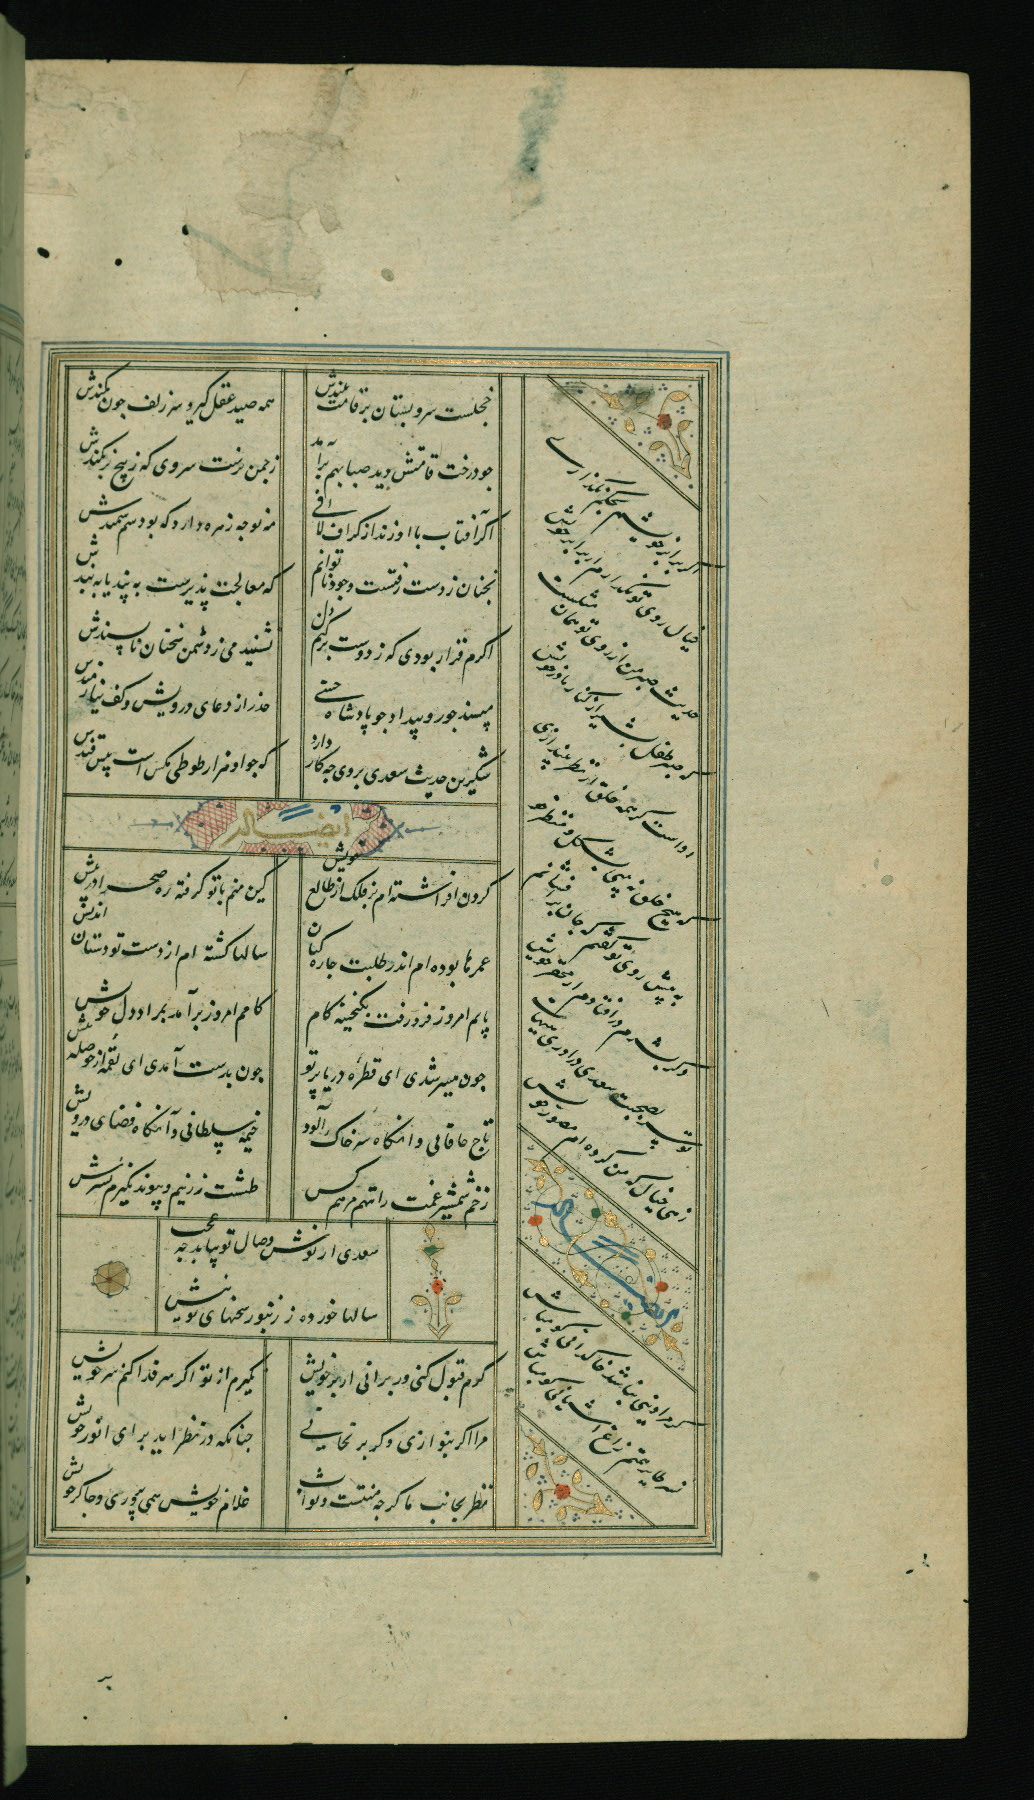 خجلست سرو بستان بر قامت بلندش
همه صید عقل گیرد سر زلف چون کمندش
چو درخت قامتش دید صبا بهم برآمد
ز چمن نرست سروی که ز بیخ بر نکندش
اگر آفتاب با او زند از گزاف لافی
مه نو چه زهره دارد که بود سم سمندش
نچنان ز دست رفتست وجود ناتوانم
که معالجت پذیرست به پند یا به بندش
اگرم قرار بودی که ز دوست برکنم دل
نشنیدمی ز دشمن سخنان ناپسندش
مپسند جور و بیداد چو پادشاه حسنی
حذر از دعای درویش و کف نیازمندش
شکرین حدیث سعدی بر وی چه کار دارد
که چو او هزار طوطی مگس است پیش قندش
ایضا له
گردن افراشته‌ام بر فلک از طالع خویش
کین منم با تو گرفته ره صحرا در پیش
عمرها بوده‌ام اندر طلبت چاره کنان
سالها گشته‌ام از دست تو دستان اندیش
پایم امروز فرو رفت بگنجینه کام
کامم امروز برآمد بمراد دل خویش
چون میسر شدی ای قطره دریا برتو
چون بدست آمدی ای لقمه از حوصله بیش
تاج خاقانی و آنگاه سر خاک آلود
خیمه سلطانی و آنگاه فضای درویش
زخم شمشیر غمت را ننهم مرهم کس
طشت زرینم و پیوند نگیرم بسریش
سعدی ار نوش وصال تو بیابد چه عجب
سالها خورده ز زنبور سخنهای تو نیش
گرم قبول کنی ور برانی از بر خویش
نگیرم از تو اگر سر فدا کنم سر خویش
مرا اگر بنوازی وگر برنجانی
چنانکه در نظر آید برای انور خویش
نظر بجانب ما گرچه منتست و ثواب
غلام خویش همی پروری و چاکر خویش
اگر برابر خویشم بحکم نگذاری
خیال روی تو نگذارم از برابر خویش
حدیث صبر من از روی تو همان مثلست
که صبر طفل بشیر از کنار مادر خویش
رواست گر همه خلق از نظر بیندازی
که هیچ خلق نبینی بشکل و منظر خویش
به پیش روی تو گفتم که جان برافشانم
دگر بشرم در افتادم از محقر خویش
تو سر بصحبت سعدی در آوری هیهات
زهی خیال که من کرده‌ام مصور خویش
ایضا له